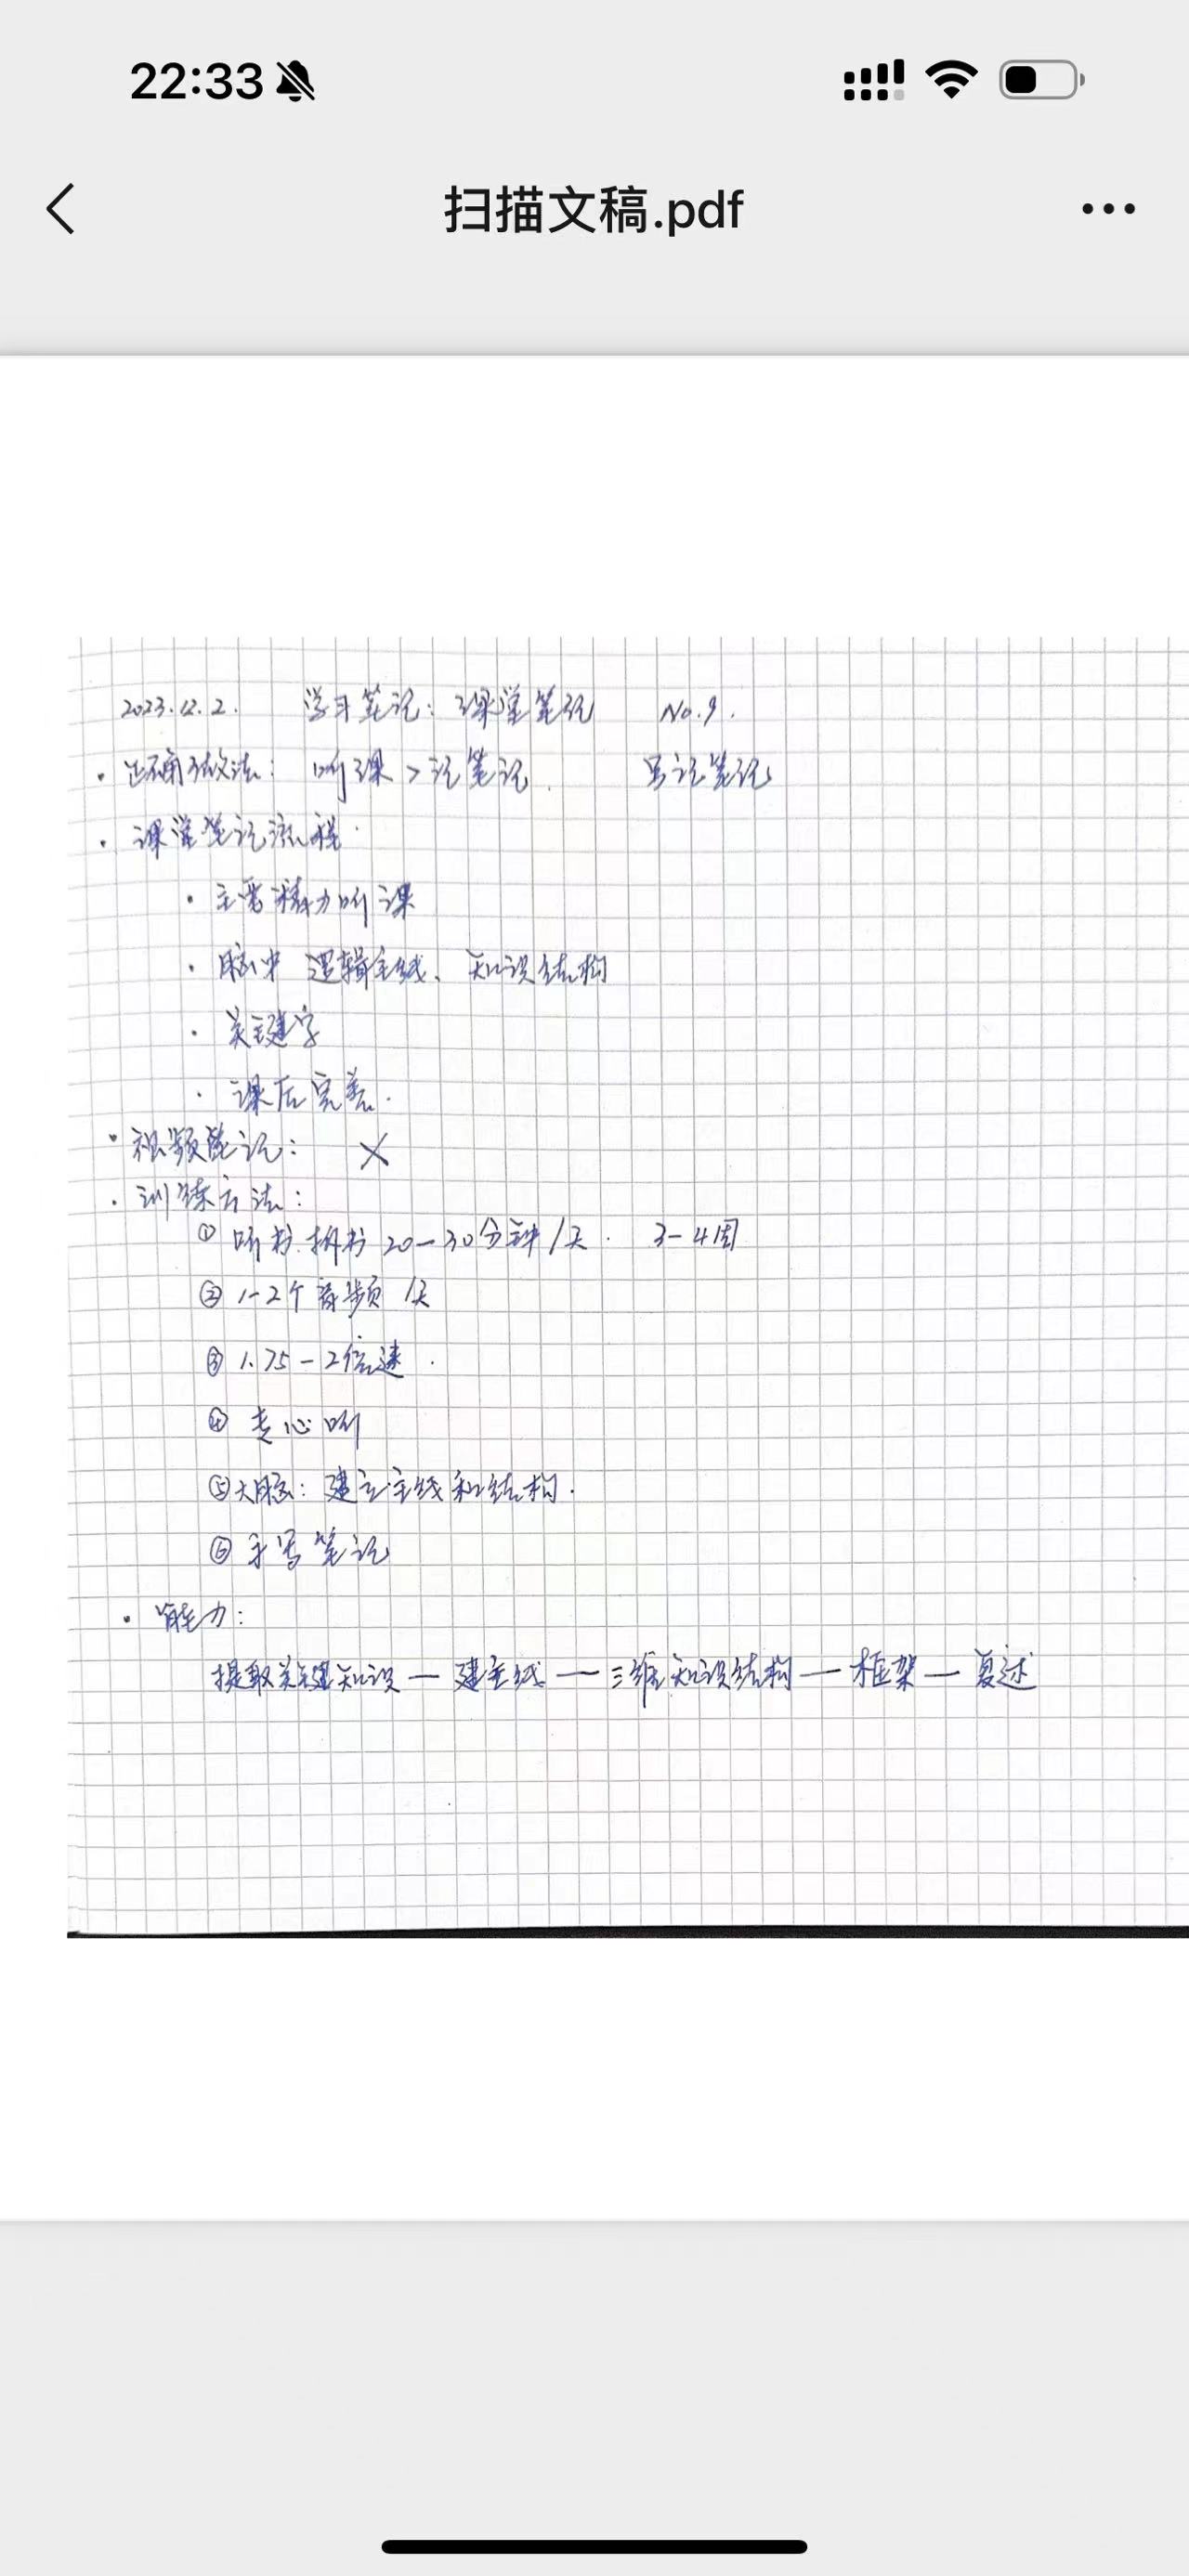 22:33
扫描文稿.pdf
2023.12.2. 学习笔记：课堂笔记 No.9.
· 正确做法：听课 > 记笔记. 笔记
· 课堂笔记流程.
· 主要精力听课
· 脑中 逻辑主线、知识结构
· 关键字
· 课后完善.
· 视频笔记： ×
· 训练方法：
① 听书.拆书 20-30分钟/天. 3-4周
② 1-2个音频 /天
③ 1.75-2倍速.
④ 走心听
⑤ 大脑：建立主线和结构.
⑥ 手写笔记
· 能力：
提取关键知识 — 建主线 — 三维知识结构 — 框架 — 复述